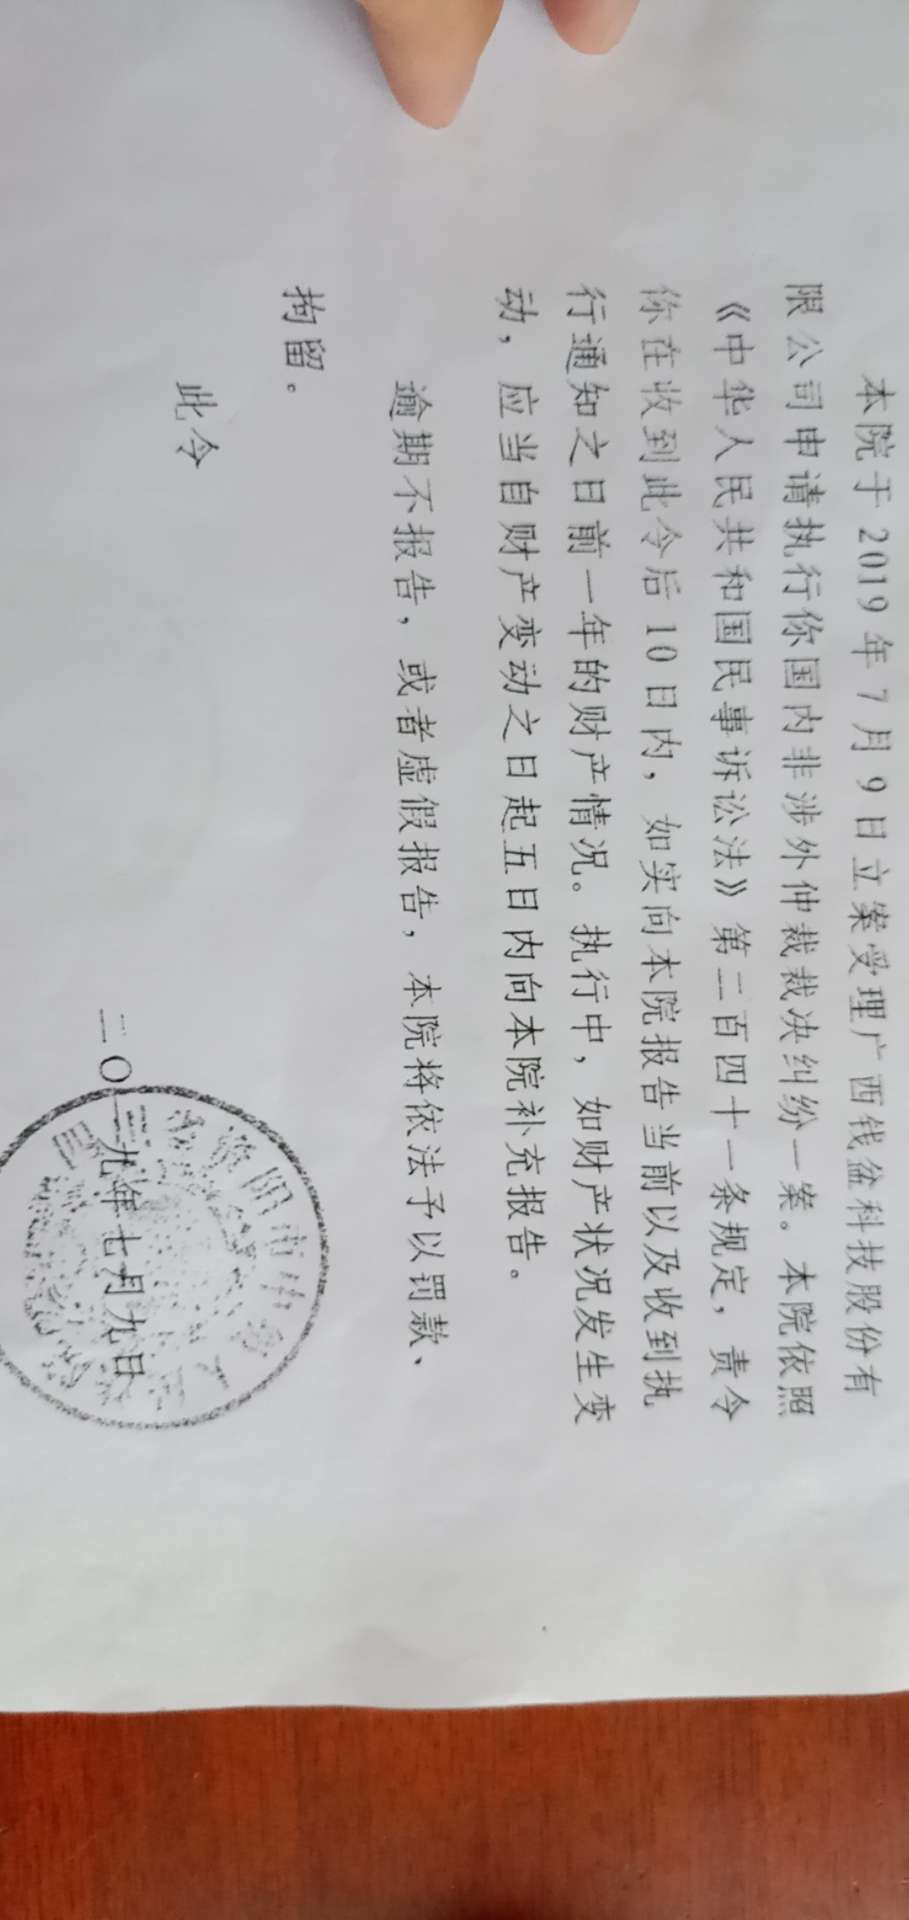 本院于2019年7月9日立案受理广西钱盆科技股份有
限公司申请执行你国内非涉外仲裁裁决纠纷一案。本院依照
《中华人民共和国民事诉讼法》第二百四十一条规定，责令
你在收到此令后10日内，如实向本院报告当前以及收到执
行通知之日前一年的财产情况。执行中，如财产状况发生变
动，应当自财产变动之日起五日内向本院补充报告。
逾期不报告，或者虚假报告，本院将依法予以罚款、
拘留。
此令
二〇一九年七月九日